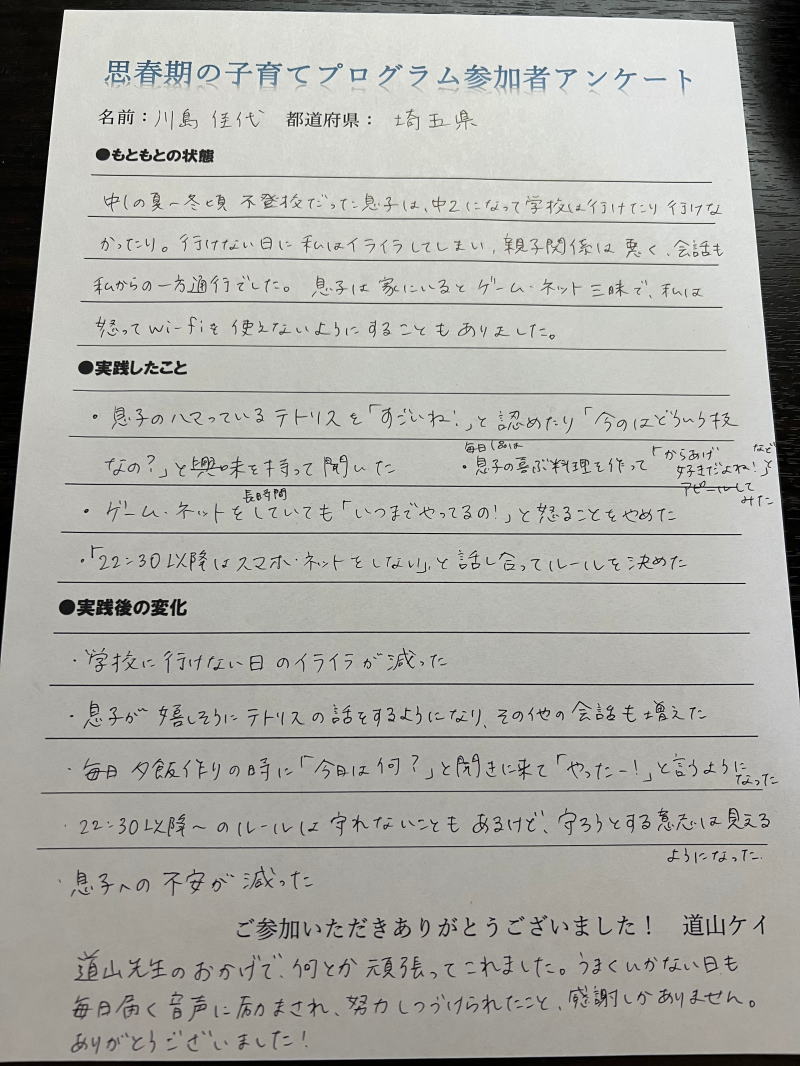 思春期の子育てプログラム参加者アンケート
名前：川島 佳代　都道府県：埼玉県
●もともとの状態
中1の夏〜冬と頃 不登校だった息子は、中2になって学校は行けたり行けな
かったり。行けない日に私はイライラしてしまい、親子関係は悪く、会話も
私からの一方通行でした。息子は家にいるとゲーム・ネット三昧で、私は
怒ってwi-fiを使えないようにすることもありました。
●実践したこと
・息子のハマっているテトリスを「すごいね!」と認めたり「今のはどういう技
なの?」と興味を持って聞いた
・毎日1品は息子の喜ぶ料理を作って「からあげ好きだよね!」などとアピールしてみた
・ゲーム・ネットを長時間していても「いつまでやってるの!」と怒ることをやめた
・「22:30以降はスマホ・ネットをしない」と話し合ってルールを決めた
●実践後の変化
・学校に行けない日のイライラが減った
・息子が嬉しそうにテトリスの話をするようになり、その他の会話も増えた
・毎日夕飯作りの時に「今日は何?」と聞きに来て「やったー!」と言うようになった
・22:30以降〜のルールは守れないこともあるけど、守ろうとする意志は見えるようになった.
・息子への不安が減った
ご参加いただきありがとうございました！　道山ケイ
道山先生のおかげで、何とか頑張ってこれました。うまくいかない日も
毎日届く音声に励まされ、努力しつづけられたこと、感謝しかありません。
ありがとうございました!